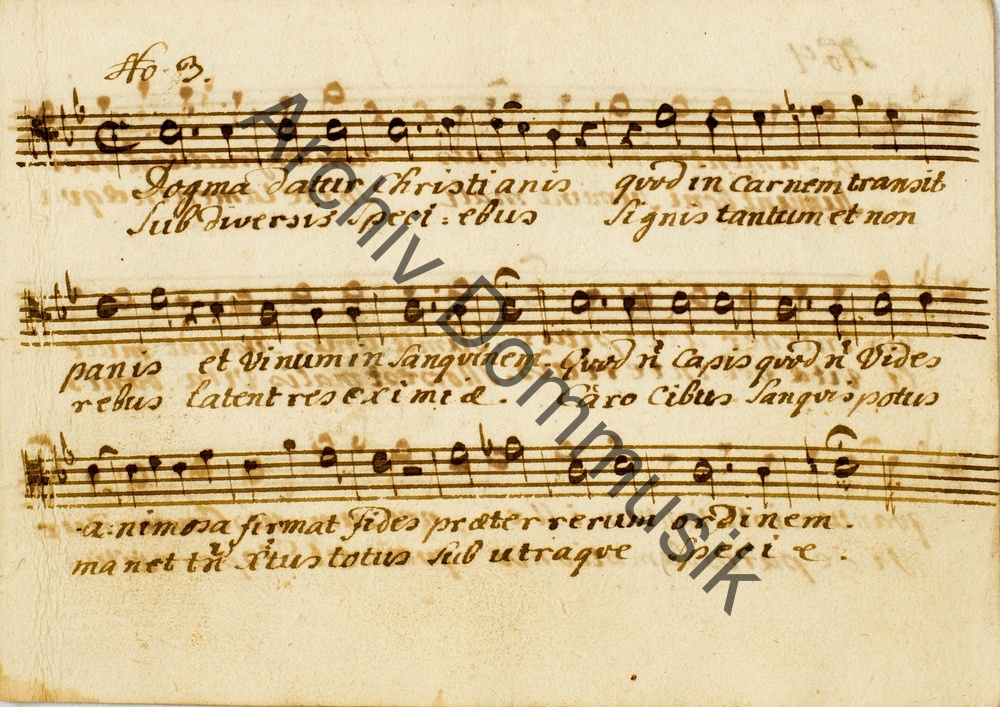 No. 3.
Dogma datur Christianis quod in carnem transit
Sub diversis speci:ebus signis tantum et non
panis et Vinum in sanguinem. Quod n̄ Capis quod n̄ Vides
rebus latent res eximiæ. Caro Cibus Sanguis potus
a:nimosa firmat fides præter rerum ordinem.
manet tn̄ Xtus totus sub utraque specie.
Archiv Dommusik